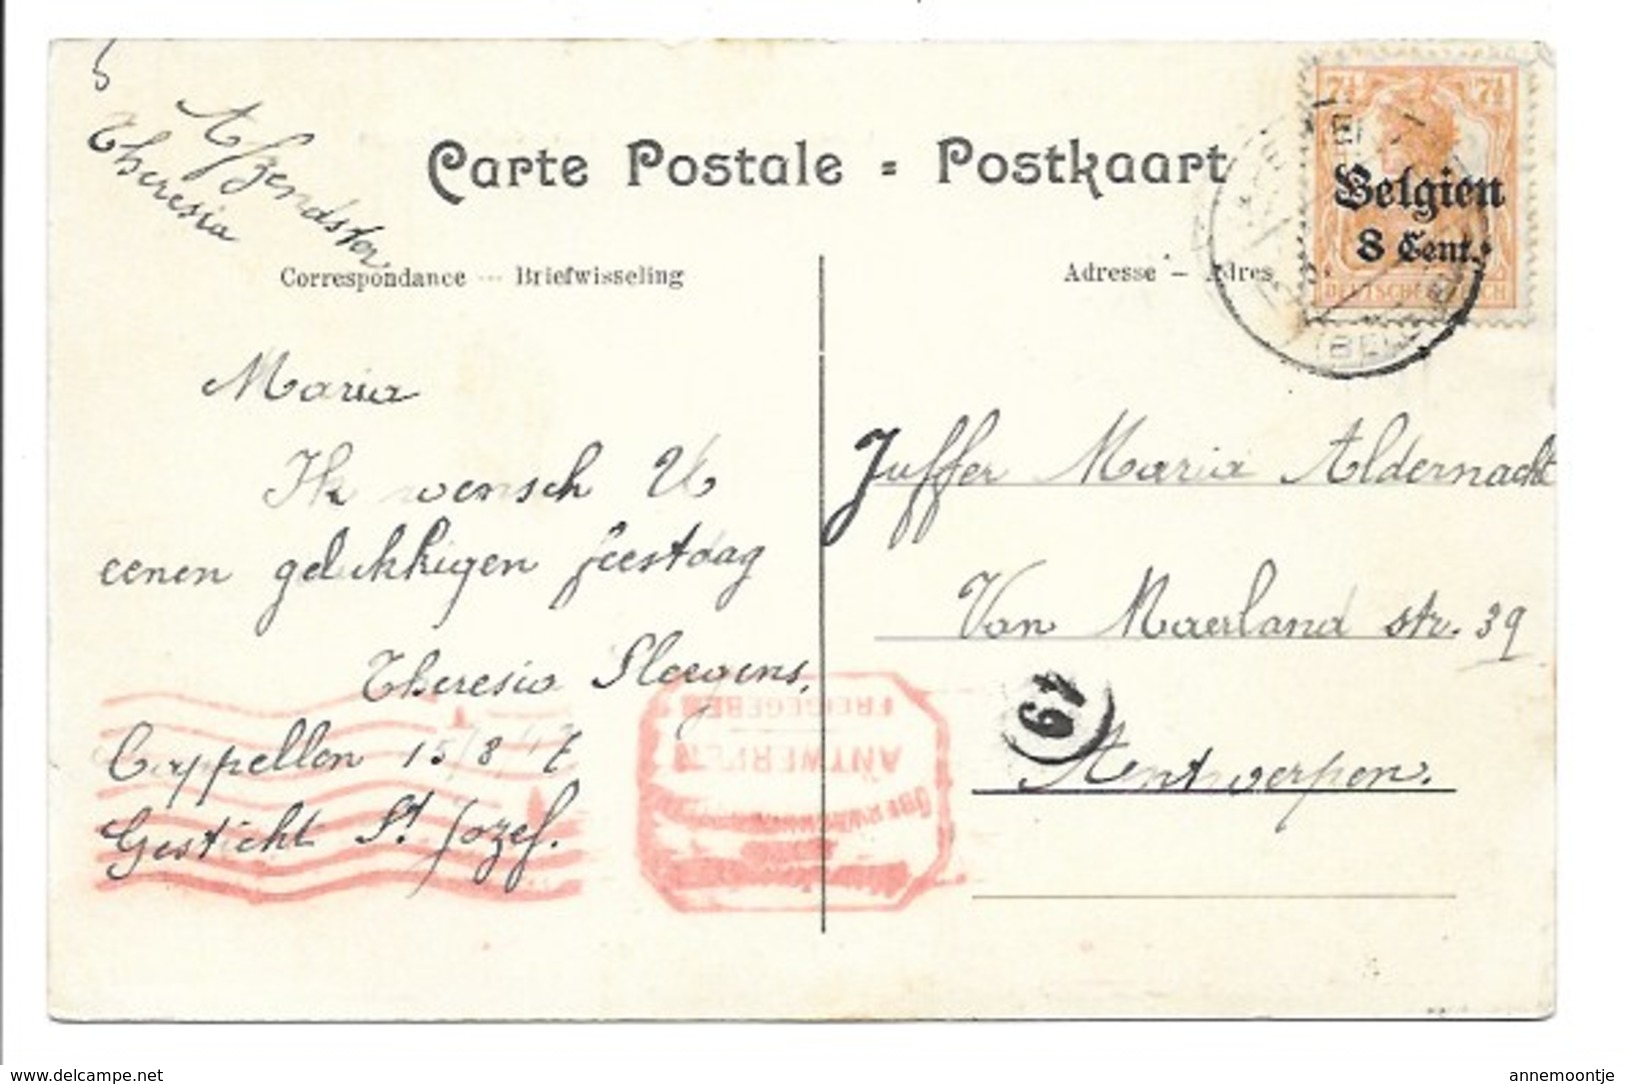 Afzendster
Theresia
Carte Postale = Postkaart
Correspondance — Briefwisseling
Adresse – Adres
7½ 7½
Belgien
8 Cent.
DEUTSCHES REICH
(BEL
Maria
Ik wensch U
eenen gelukkigen feestdag
Theresia Sleegens,
Cappellen 15/8/17
Gesticht St Jozef.
Juffer Maria Aldernacht
Van Maerland str. 39
Antwerpen.
61
ANTWERPEN
FREIGEGEBEN
www.delcampe.net
annemoontje